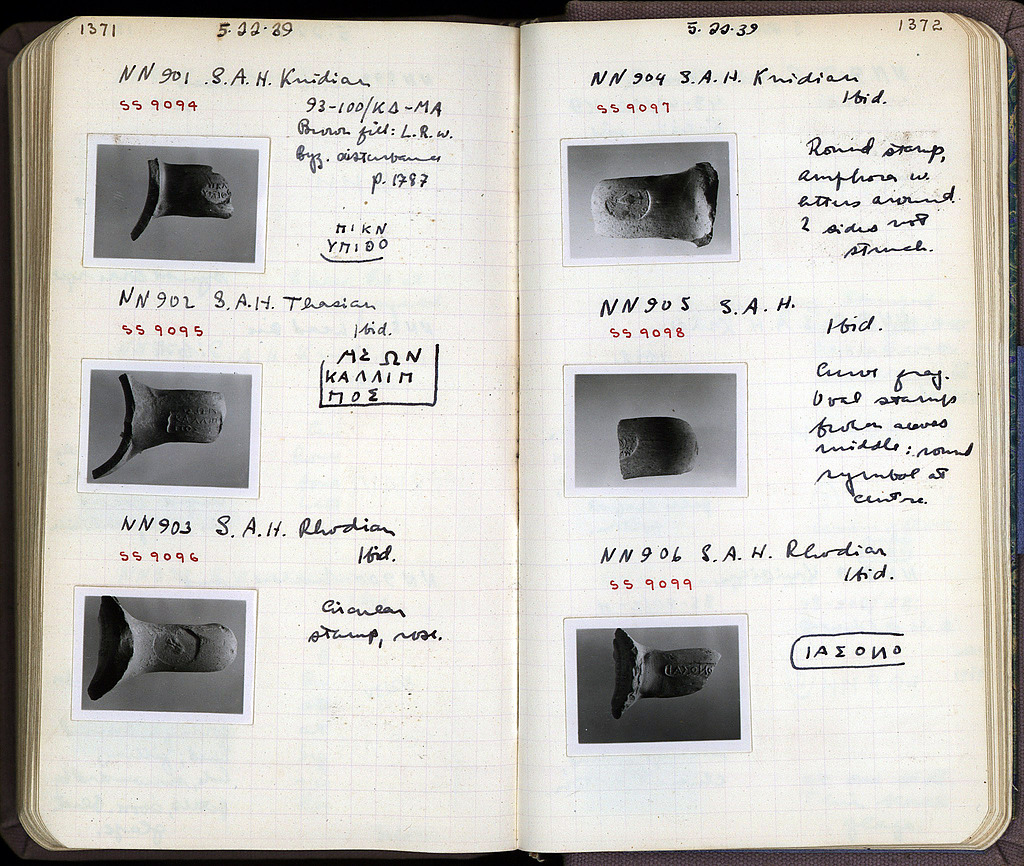 1371
5.22.39
NN901 S.A.H. Knidian
SS 9094
93-100/ΚΔ-ΜΑ
Brown fill: L.R.W.
Byz. disturbance
p. 1787
ΠΙΚΝ
ΥΠΙΘΟ
NN902 S.A.H. Thasian
SS 9095
Ibid.
ΜΣΩΝ
ΚΑΛΛΙΠ
ΠΟΣ
NN903 S.A.H. Rhodian
SS 9096
Ibid.
Circular
stamp, rose.
5.22.39
1372
NN904 S.A.H. Knidian
SS 9097
Ibid.
Round stamp,
amphora w.
letters around
2 sides not
struck.
NN905 S.A.H.
SS 9098
Ibid.
Curve frag.
Oval stamp
broken across
middle: round
symbol at
centre.
NN906 S.A.H. Rhodian
SS 9099
Ibid.
ΙΑΣΟΝΟ